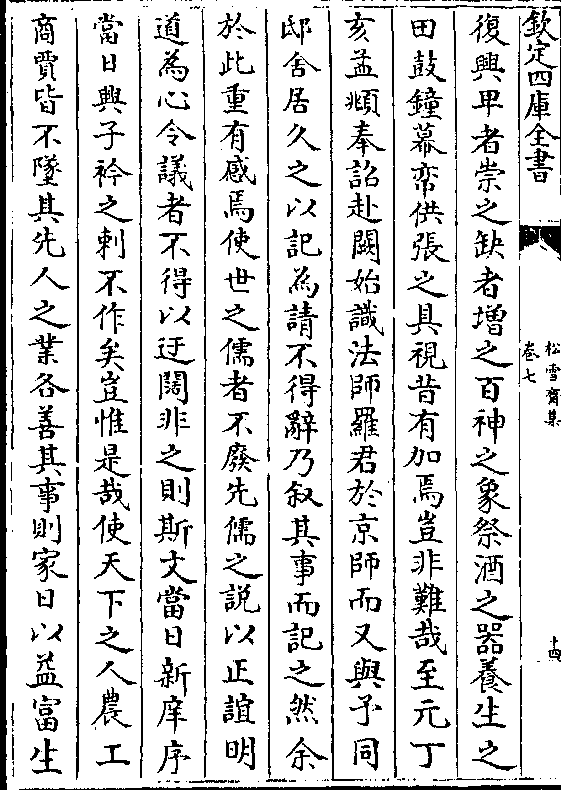 欽定四庫全書
松雪齋集
卷七
十四
復興卑者崇之缺者增之百神之象祭酒之器養生之
田鼓鐘幕帟供張之具視昔有加焉豈非難哉至元丁
亥孟頫奉詔赴闕始識法師羅君於京師而又與予同
邸舍居久之以記為請不得辭乃叙其事而記之然余
於此重有感焉使世之儒者不廢先儒之説以正誼明
道為心令議者不得以迂闊非之則斯文當日新庠序
當日興子衿之刺不作矣豈惟是哉使天下之人農工
商賈皆不墜其先人之業各善其事則家日以益富生